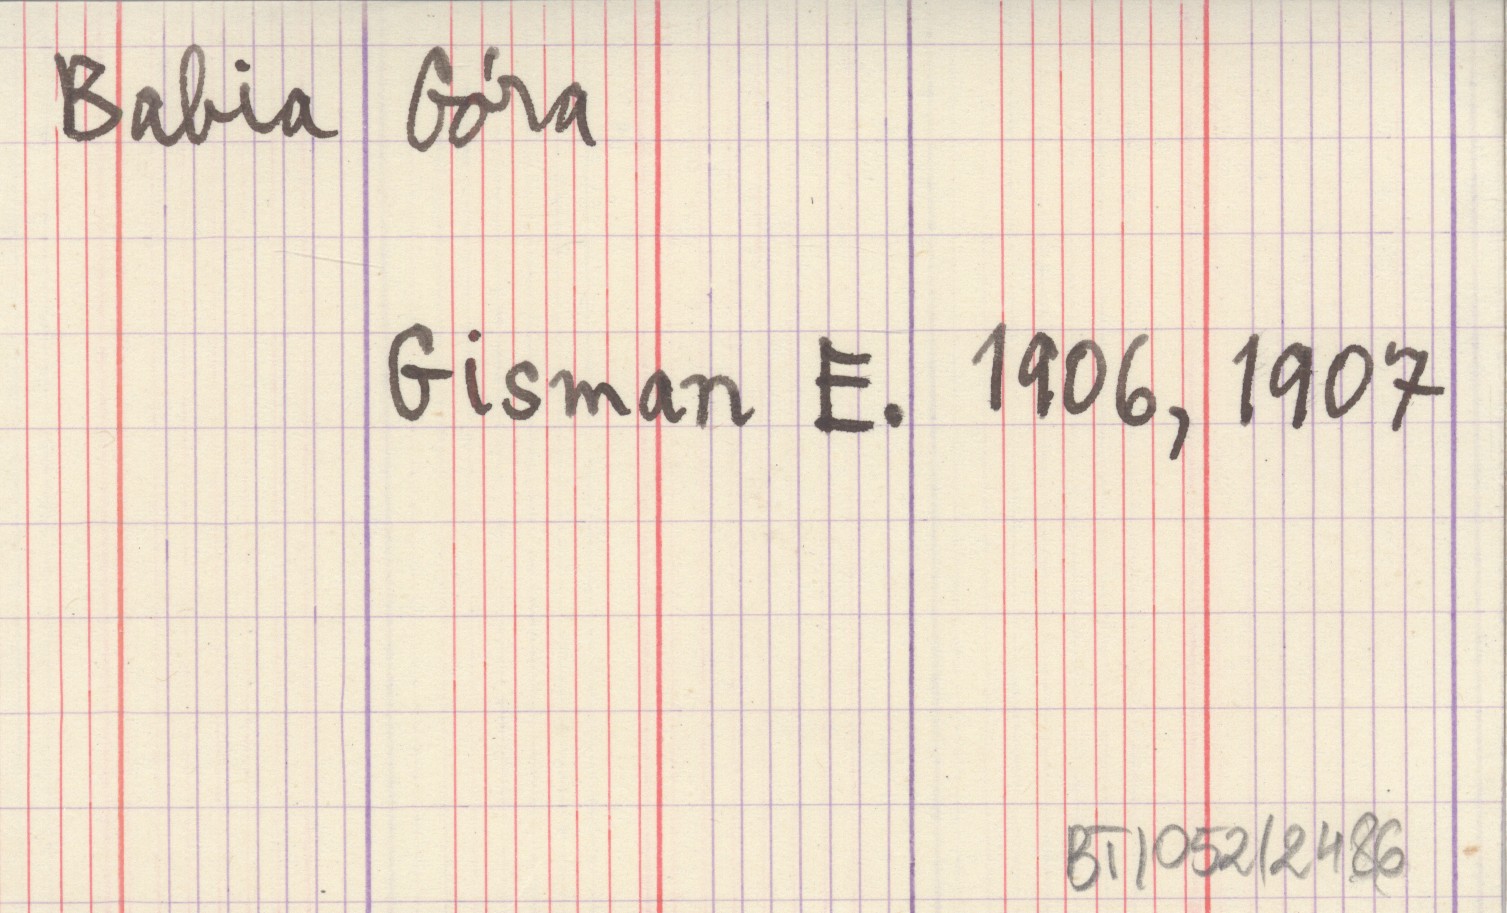 Babia Góra
Gisman E. 1906, 1907
BT/052/2486